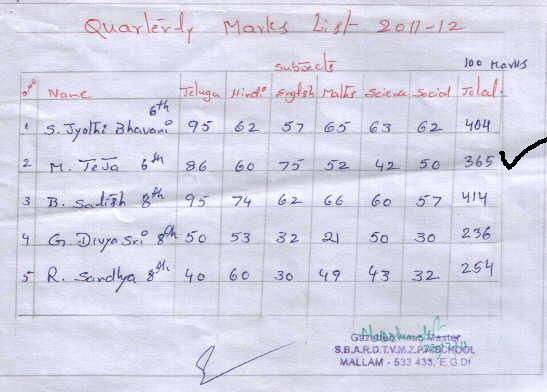 Quarterly Marks List 2011-12
Subjects 100 Marks
S.No Name Telugu Hindi English Maths Science Social Total
1 S. Jyothi Bhavani 6th 95 62 57 65 63 62 404
2 M. Teja 6th 86 60 75 52 42 50 365
3 B. Satish 8th 95 74 62 66 60 57 414
4 G. Divya Sri 8th 50 53 32 21 50 30 236
5 R. Sandhya 8th 40 60 30 49 43 32 254
Master
S.B.A.R.D.T.V.M.Z.P.P. SCHOOL
MALLAM - 533 435, E.G.Dt